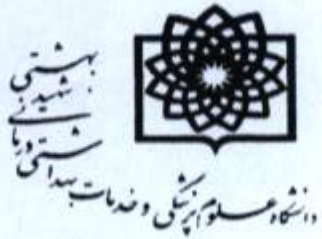 دانشگاه علوم پزشکی و خدمات بهداشتی و درمانی شهید بهشتی